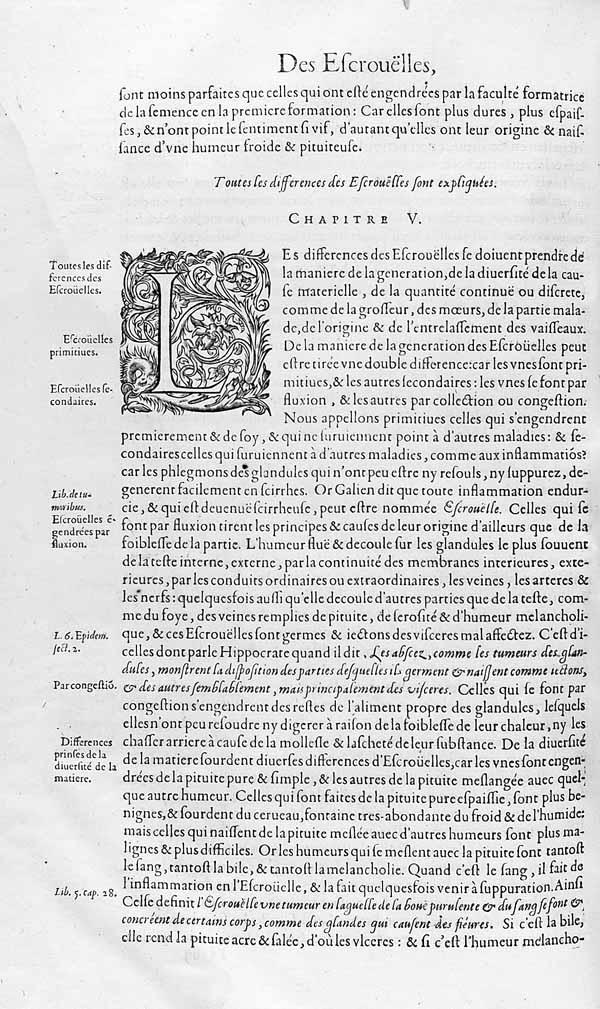 Des Eſcrouëlles,
ſont moins parfaites que celles qui ont eſté engendrées par la faculté formatrice
de la ſemence en la premiere formation : Car elles ſont plus dures, plus eſpaiſ-
ſes, & n'ont point le ſentiment ſi vif, d'autant qu'elles ont leur origine & naiſ-
ſance d'vne humeur froide & pituiteuſe.
Toutes les differences des Eſcrouëlles ſont expliquées.
CHAPITRE V.
Toutes les dif-
ferences des
Eſcroüelles.
Eſcroüelles
primitiues.
Eſcroüelles ſe-
condaires.
LEs differences des Eſcrouëlles ſe doiuent prendre de
la maniere de la generation, de la diuerſité de la cau-
ſe materielle, de la quantité continuë ou diſcrete,
comme de la groſſeur, des mœurs, de la partie mala-
de, de l'origine & de l'entrelaſſement des vaiſſeaux.
De la maniere de la generation des Eſcroüelles peut
eſtre tirée vne double difference : car les vnes ſont pri-
mitiues, & les autres ſecondaires : les vnes ſe font par
fluxion, & les autres par collection ou congeſtion.
Nous appellons primitiues celles qui s'engendrent
premierement & de ſoy, & qui ne ſuruiennent point à d'autres maladies : & ſe-
condaires celles qui ſuruiennent à d'autres maladies, comme aux inflammatiõs:
car les phlegmons des glandules qui n'ont peu eſtre ny reſouls, ny ſuppurez, de-
generent facilement en ſcirrhes. Or Galien dit que toute inflammation endur-
cie, & qui eſt deuenuë ſcirrheuſe, peut eſtre nommée Eſcrouëlle. Celles qui ſe
font par fluxion tirent les principes & cauſes de leur origine d'ailleurs que de la
foibleſſe de la partie. L'humeur fluë & decoule ſur les glandules le plus ſouuent
de la teſte interne, externe, par la continuité des membranes interieures, exte-
rieures, par les conduits ordinaires ou extraordinaires, les veines, les arteres &
les nerfs : quelquesfois auſſi qu'elle decoule d'autres parties que de la teſte, com-
me du foye, des veines remplies de pituite, de ſeroſité & d'humeur melancholi-
que, & ces Eſcrouëlles ſont germes & iectons des viſceres mal affectez. C'eſt d'i-
celles dont parle Hippocrate quand il dit, Les abſcez, comme les tumeurs des glan-
dules, monſtrent la diſpoſition des parties deſquelles ils germent & naiſſent comme iectons,
& des autres ſemblablement, mais principalement des viſceres. Celles qui ſe font par
congeſtion s'engendrent des reſtes de l'aliment propre des glandules, leſquels
elles n'ont peu reſoudre ny digerer à raiſon de la foibleſſe de leur chaleur, ny les
chaſſer arriere à cauſe de la molleſſe & laſcheté de leur ſubſtance. De la diuerſité
de la matiere ſourdent diuerſes differences d'Eſcroüelles, car les vnes ſont engen-
drées de la pituite pure & ſimple, & les autres de la pituite meſlangée auec quel-
que autre humeur. Celles qui ſont faites de la pituite pure eſpaiſſie, ſont plus be-
nignes, & ſourdent du cerueau, fontaine tres-abondante du froid & de l'humide:
mais celles qui naiſſent de la pituite meſlée auec d'autres humeurs ſont plus ma-
lignes & plus difficiles. Or les humeurs qui ſe meſlent auec la pituite ſont tantoſt
le ſang, tantoſt la bile, & tantoſt la melancholie. Quand c'eſt le ſang, il fait de
l'inflammation en l'Eſcroüelle, & la fait quelquesfois venir à ſuppuration. Ainſi
Celſe definit l'Eſcrouëlle vne tumeur en laquelle de la bouë purulente & du ſang ſe font &
concréent de certains corps, comme des glandes qui cauſent des fiéures. Si c'eſt la bile,
elle rend la pituite acre & ſalée, d'où les vlceres : & ſi c'eſt l'humeur melancho-
Lib. de tu-
moribus.
Eſcroüelles é-
gendrées par
fluxion.
L. 6. Epidem.
ſect. 2.
Par congeſtiõ.
Differences
prinſes de la
diuerſité de la
matiere.
Lib. 5. cap. 28.